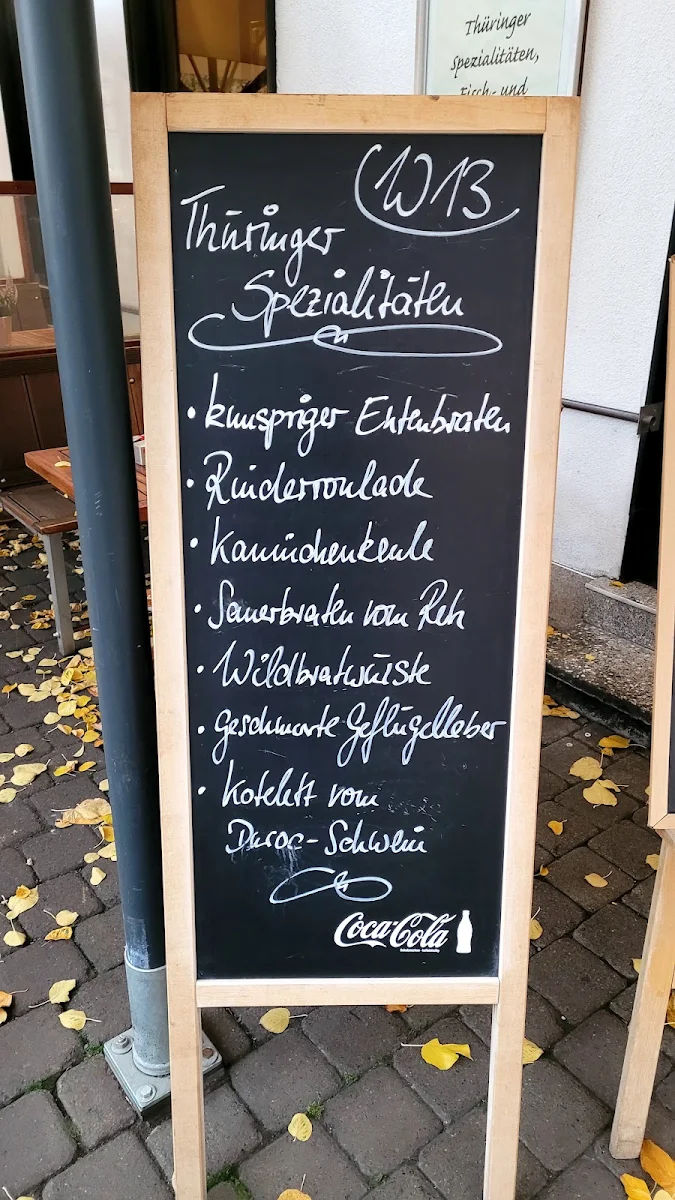 Thüringer
Spezialitäten,
Fisch- und
W13
Thüringer
Spezialitäten
• knuspriger Entenbraten
• Rinderroulade
• Kaninchenkeule
• Sauerbraten vom Reh
• Wildbratwürste
• geschmorte Geflügelleber
• Kotelett vom
Duroc-Schwein
Coca-Cola